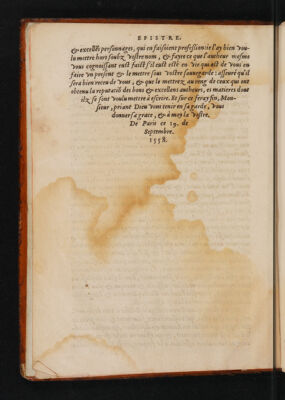 EPISTRE.
& excellés personnages, qui en faisoient profession: ie l'ay bien vou-
lu mettre hors soubz vostre nom, & fayre ce que l'autheur mesme
vous cognoissant eust faict s'il eust esté en vie qui est de vous en
faire vn present & le mettre sous vostre sauuegarde: asseuré qu'il
sera bien receu de vous, & que le mettrez au reng de ceux qui ont
obtenu la reputatiõ des bons & excellent autheurs, es matieres dont
ilz se sont voulu mettre à escrire. Et sur ce feray fin, Mon-
sieur, priant Dieu vous tenir en sa garde, vous
donner sa grace, & à moy la vostre.
De Paris ce 19. de
Septembre.
1558.